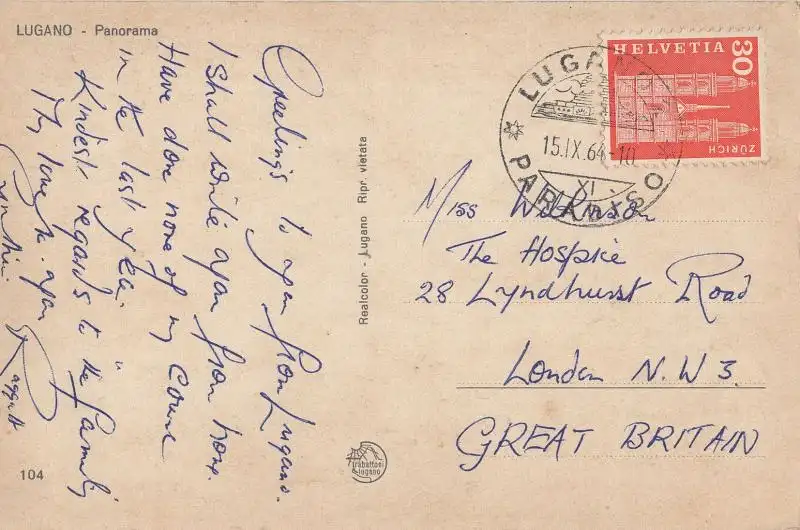 LUGANO - Panorama
Greetings to you from Lugano.
I shall write you from home.
Have done none of my course
in the last year.
Kindest regards to the family
My love to you
104
Realcolor - Lugano Ripr. vietata
trabattoni
lugano
HELVETIA 30
ZÜRICH
LUGANO
15.IX.64-10
XI
PARADISO
Miss Wilkinson
The Hospice
28 Lyndhurst Road
London N.W 3.
GREAT BRITAIN